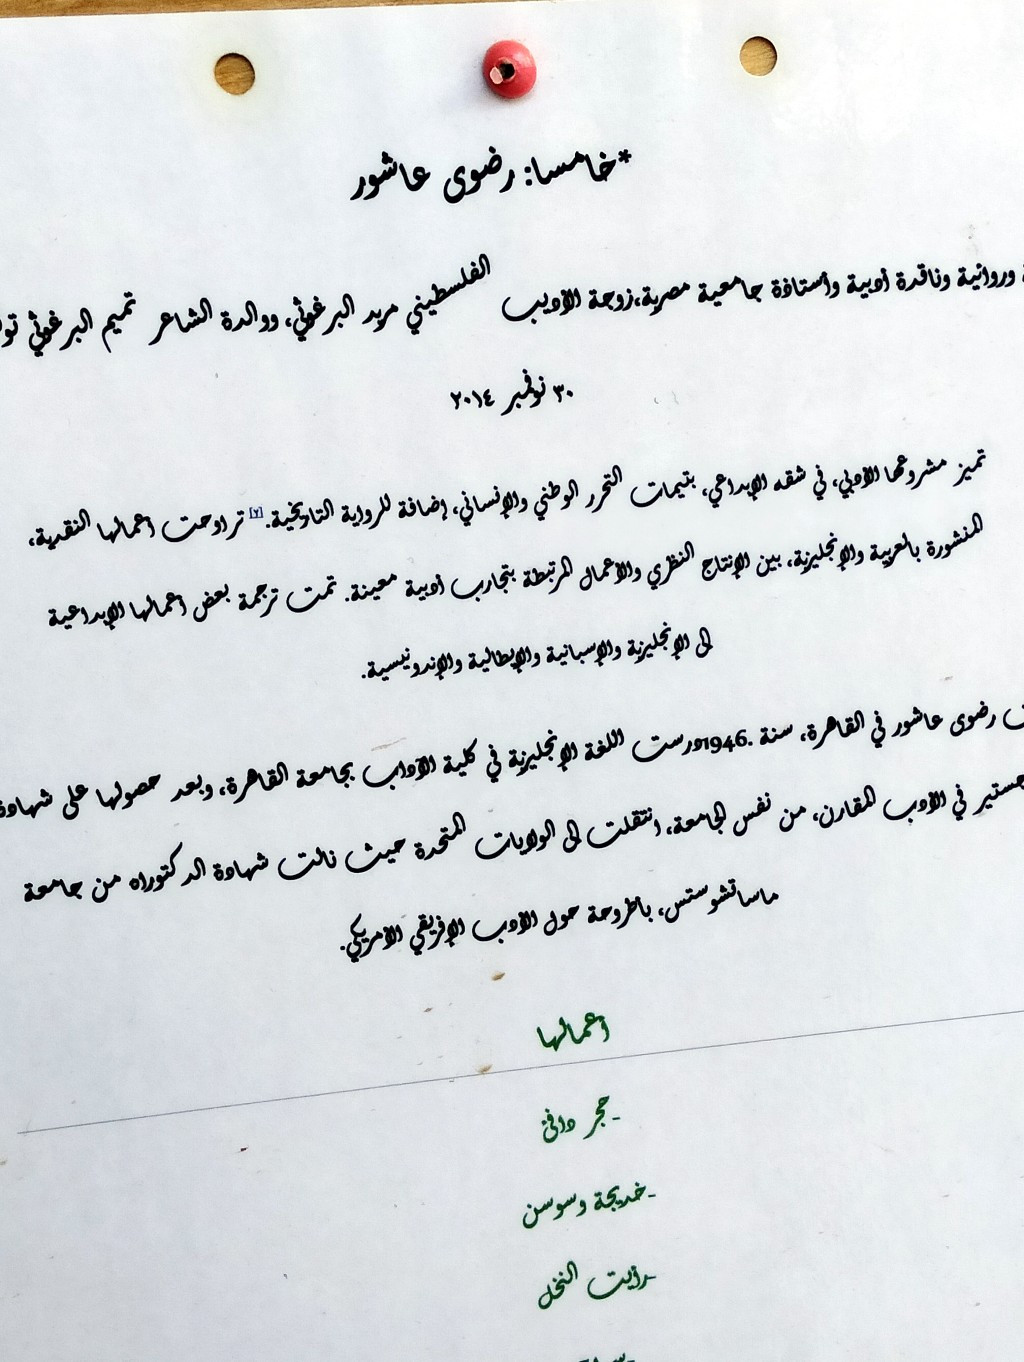 *خامسا: رضوى عاشور
وروائية وناقدة أدبية وأستاذة جامعية مصرية،زوجة الأديب الفلسطيني مريد البرغوثي، ووالدة الشاعر تميم البرغوثي
٣٠ نوفمبر ٢٠١٤
تميز مشروعها الأدبي، في شقه الإبداعي، بتيمات التحرر الوطني والإنساني، إضافة للرواية التاريخية.[٢] تراوحت أعمالها النقدية،
المنشورة بالعربية والإنجليزية، بين الإنتاج النظري والأعمال المرتبطة بتجارب أدبية معينة. تمت ترجمة بعض أعمالها الإبداعية
إلى الإنجليزية والإسبانية والإيطالية والإندونيسية.
رضوى عاشور في القاهرة، سنة .1946درست اللغة الإنجليزية في كلية الآداب بجامعة القاهرة، وبعد حصولها على شهادة
في الأدب المقارن، من نفس الجامعة، انتقلت إلى الولايات المتحدة حيث نالت شهادة الدكتوراه من جامعة
ماساتشوستس، بأطروحة حول الأدب الإفريقي الأمريكي.
أعمالها
-حجر دافئ
-خديجة وسوسن
-رأيت النخل